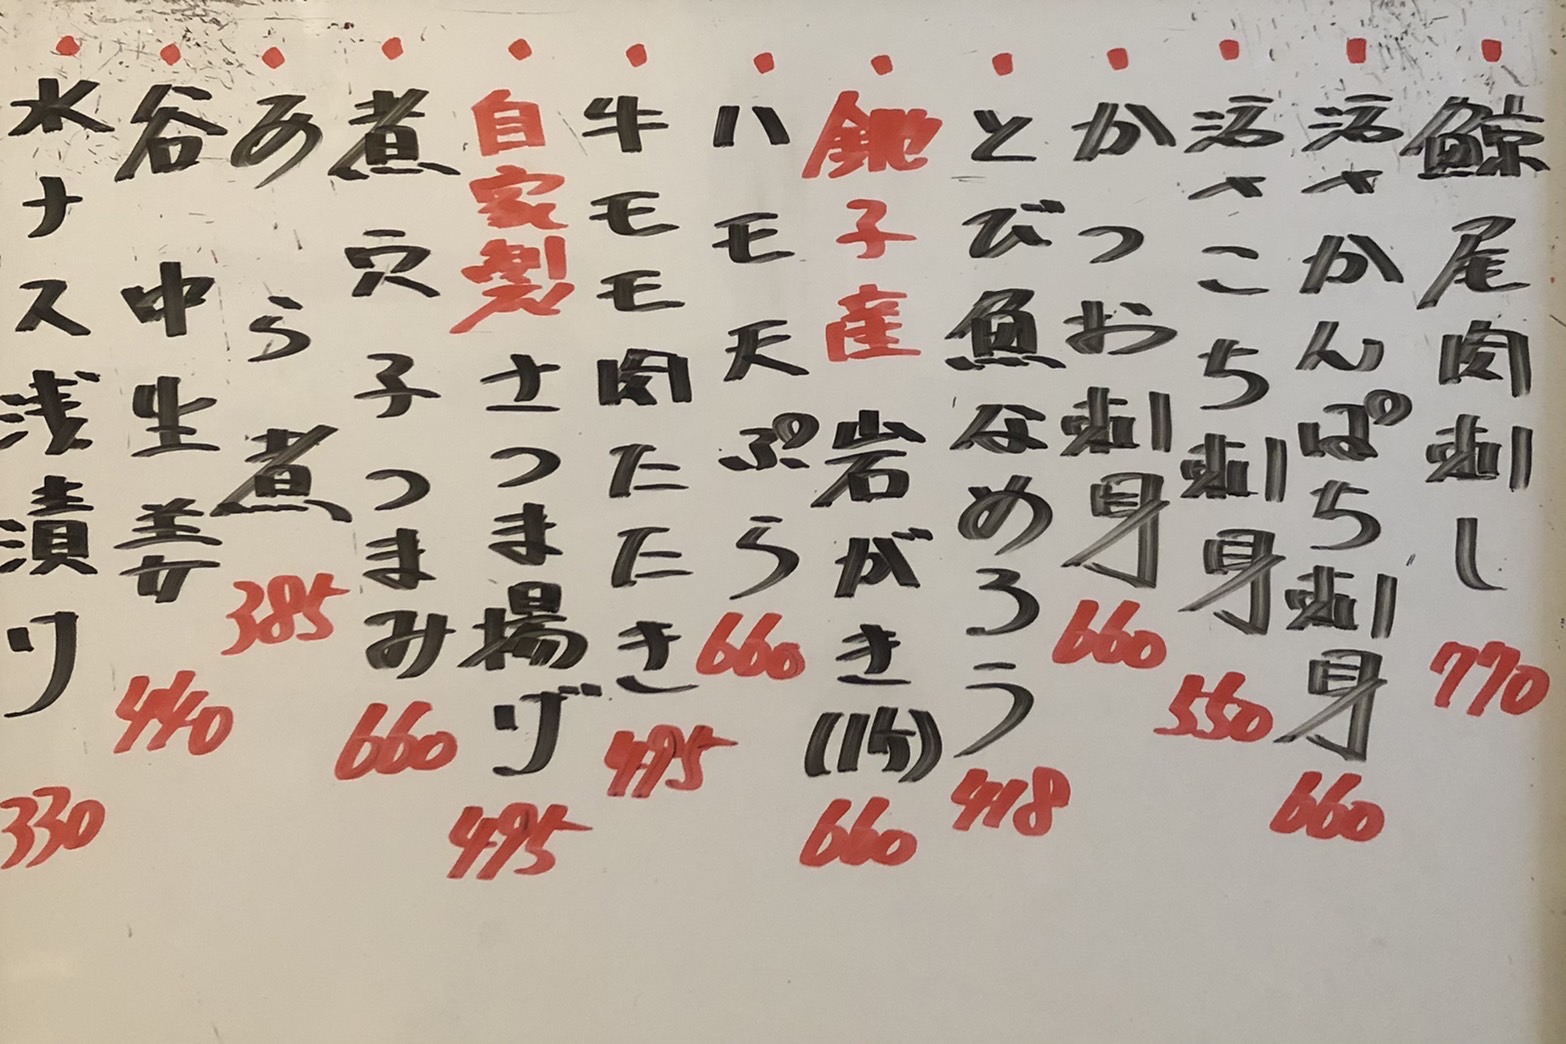 鯨尾肉刺し 770
活〆かんぱち刺身 660
活〆こち刺身 550
かつお刺身 660
とび魚なめろう 418
銚子産 岩がき(1ヶ) 660
ハモ天ぷら 660
牛モモ肉たたき 495
自家製 さつま揚げ 495
煮穴子つまみ 660
あら煮 385
谷中生姜 440
水ナス浅漬り 330